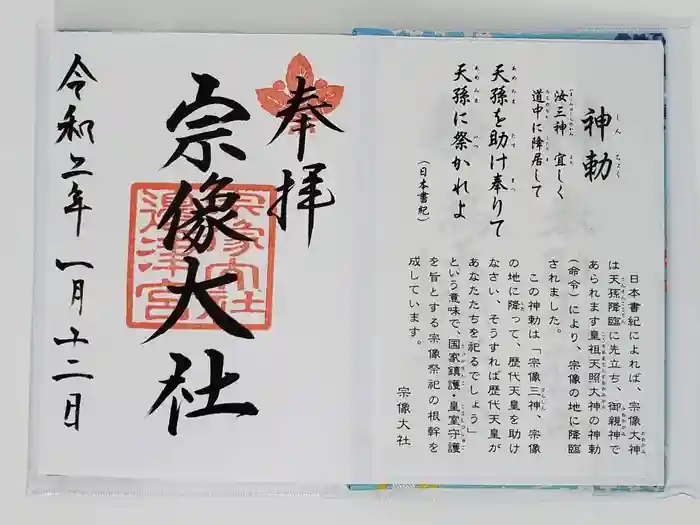 神勅
汝三神 宜しく
道中に降居して
天孫を助け奉りて
天孫に祭かれよ
(日本書紀)
日本書紀によれば、宗像大神
は天孫降臨に先立ち、御親神で
あられます皇祖天照大神の神勅
(命令)により、宗像の地に降臨
されました。
この神勅は「宗像三神。宗像
の地に降って、歴代天皇を助け
なさい、そうすれば歴代天皇が
あなたたちを祀るでしょう」
という意味で、国家鎮護・皇室守護
を旨とする宗像祭祀の根幹を
成しています。
宗像大社
奉拝
宗像大社
宗像大社
邊津宮
令和二年 一月十二日